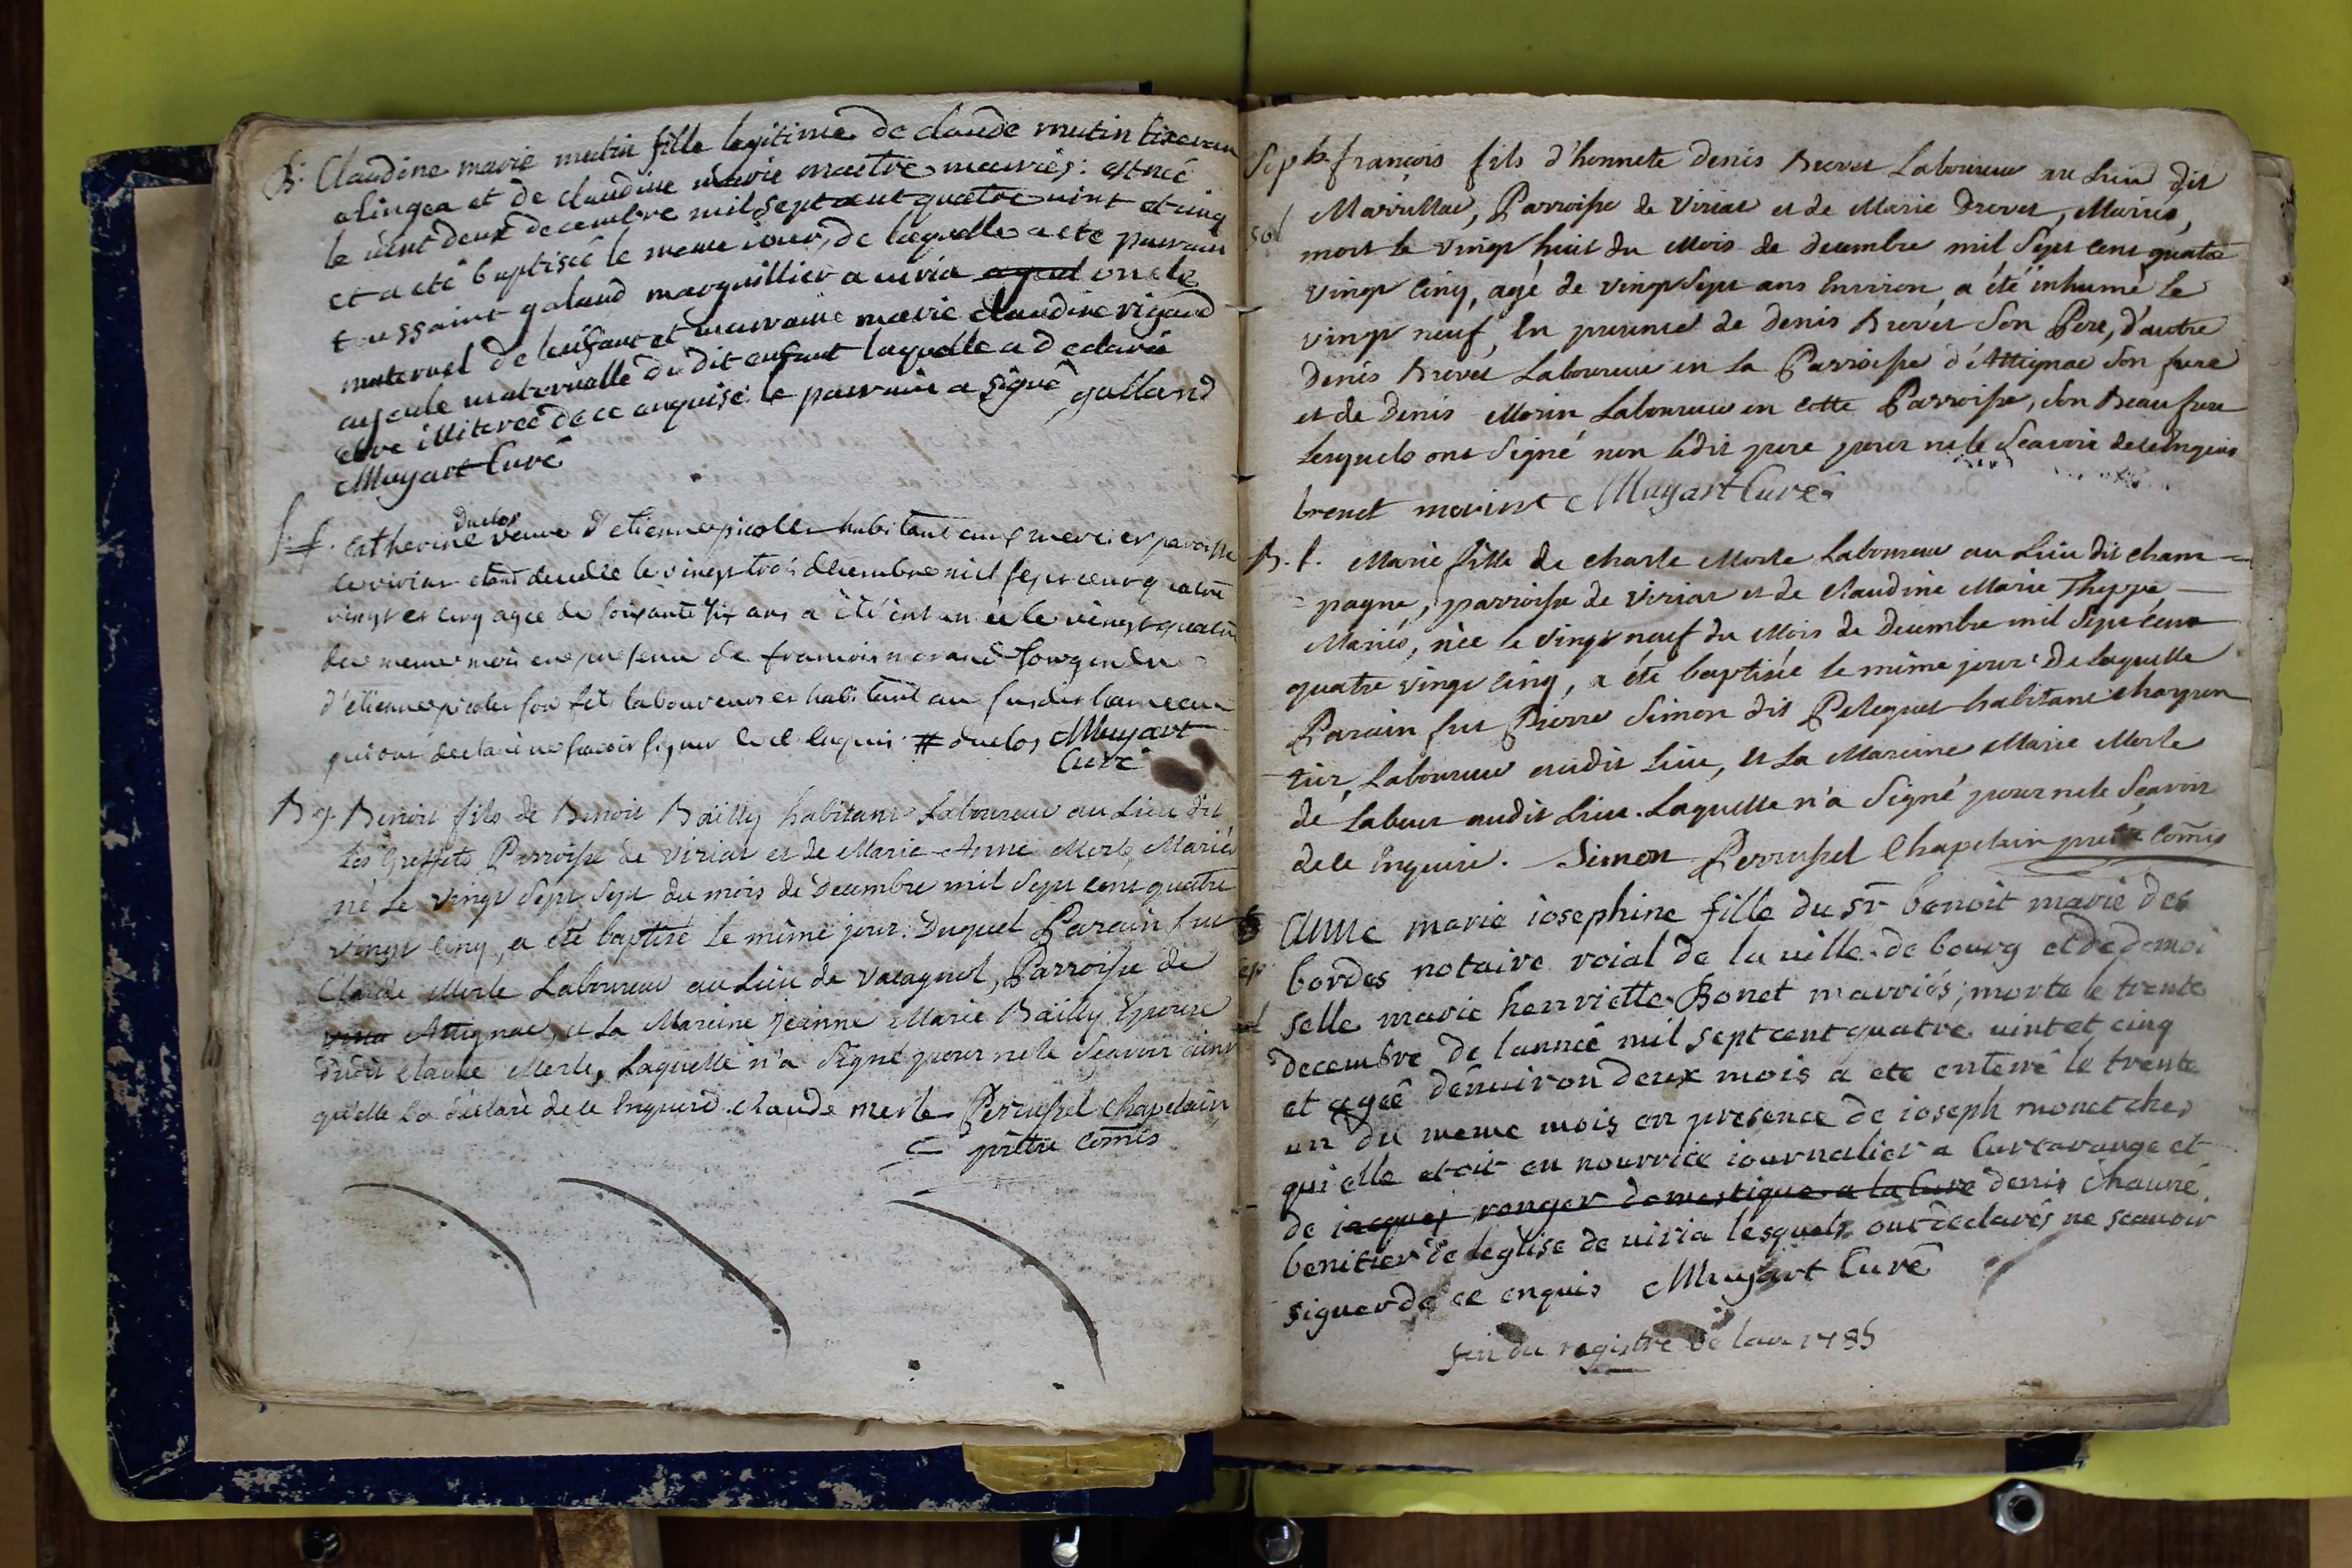 B. Claudine marie mutin fille legitime de claude mutin tixeran
a lingea et de claudine marie maitre mariés: est née
le vint deux decembre mil sept cent quatre vint et cinq
et a eté baptisée le meme iour, de laquelle a eté parrain
toussaint galand marguillier a viria ayeul oncle
maternel de l'enfant et marraine marie claudine rigaud
ayeule maternelle du dit enfant laquelle a declaré
etre illiterée de ce enquise: le parrain a signé galland
Muyart Curé
S. f. catherine duclos veuve d'etienne picollet habitant aux mercier paroisse
de viriat etant decedée le vingt trois decembre mil sept cent quatre
vingt et cinq agée de soixante six ans a été enterrée le vingt quatre
du meme mois en presence de francois morand son gendre
d'etienne picolet son fils laboureurs et habitant au susdit hameau
qui ont declaré ne scavoir signer de ce enquis # duclos Muyart
Curé
B g. Benoit fils de Benoit Bailly habitant Laboureur au Lieu dit
Les Greffets Parroisse de Viriat et de Marie Anne Merle Mariés
né Le Vingt Sept Sept du mois de Decembre mil Sept cent quatre
vingt cinq, a été baptisé Le même jour: Duquel Parain fut
Claude Merle Laboureur au Lieu de Vacagnol, Parroisse de
Attignac, et La Mareine Jeanne Marie Bailly Epouse
dudit Claude Merle, Laquelle n'a Signé pour ne le Scavoir ainsi
qu'elle L'a déclaré de ce Enquise. claude merle Perrussel chapelain
prêtre Comis
Sep h. françois fils d'honnete Denis Brevet Laboureur au Lieu dit
Marillac, Parroisse de Viriat et de Marie Drevet, Mariés,
sol mort le vingt huit du Mois de decembre mil Sept cent quatre
vingt Cinq, agé de vingt Sept ans Environ, a été inhumé Le
vingt neuf, En presence de Denis Brevet Son Pere, d'autre
Denis Brevet Laboureur en La Parroisse d'Attignac Son frere
et de Denis Morin Laboureur en cette Parroisse, Son Beau frere
Lesquels ont Signé non Ledit pere pour ne le Scavoir de ce Enquis
brevet morin Muyart Curé
B. f. Marie fille de Charle Merle Laboureur au Lieu dit cham=
=pagne, parroisse de Viriat et de Claudine Marie Theppe
Mariés, née le Vingt neuf du Mois de decembre mil Sept Cent
quatre vingt Cinq, a été baptisée le même jour: De Laquelle
Parain fut Pierre Simon dit Peleguet habitant charpen
tier, Laboureur audit Lieu, et La Mareine Marie Merle
de Labeur audit Lieu. Laquelle n'a Signé pour ne le Sçavoir
de ce Enquise. Simon Perrussel Chapelain prêtre Comis
Anne marie iosephine fille du sr benoit marie des
bordes notaire roial de la ville de bourg et de demoi
selle marie henriette Bonet marriés; morte le trente
decembre de l'année mil sept cent quatre vint et cinq
et agée d'environ deux mois a eté enterré le trente
un du meme mois en presence de ioseph monet chez
qui elle etoit en nourrice iournalier a Curtarange et
de iacques ronger domestique a la Cure denis chauné
benitier de l'eglise de viria lesquels ont declarés ne scavoir
signer de ce enquis Muyart Curé
fin du registre de l'an 1785